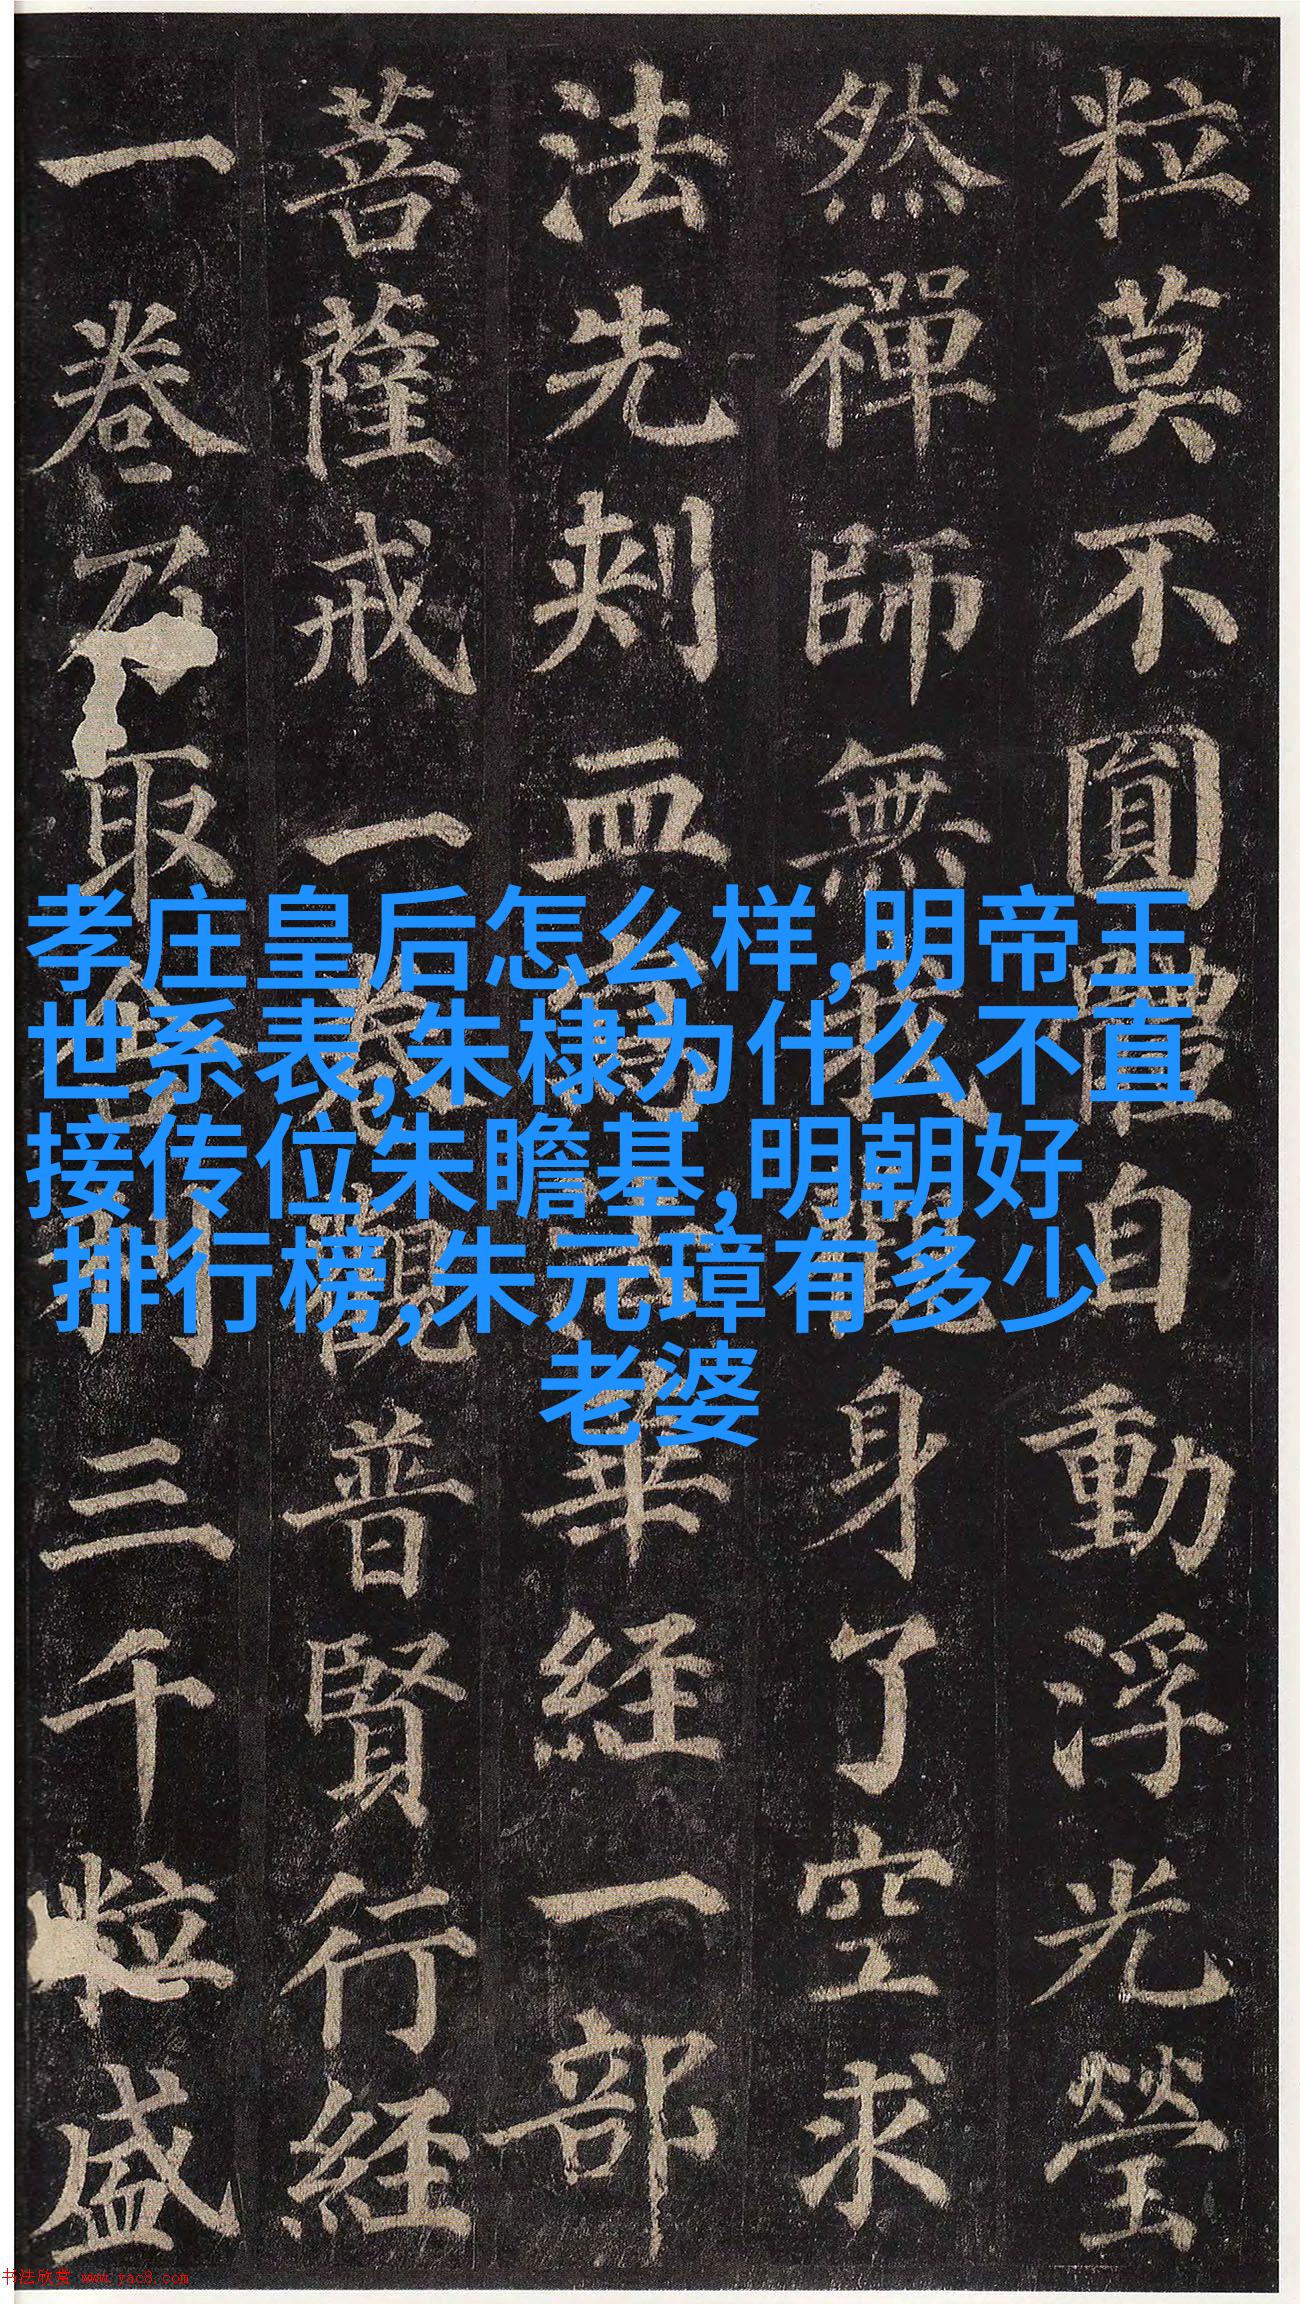 粒莫不圓體自動浮光瑩
然禪師無我觀身了空求
法先刾血寫法華経一部
菩薩戒一卷觀普賢行経
一卷乃取舍利三千粒盛
孝庄皇后怎么样,明帝王
世系表,朱棣为什么不直
接传位朱瞻基,明朝好
排行榜,朱元璋有多少
老婆
书法欣赏 www.yac8.com